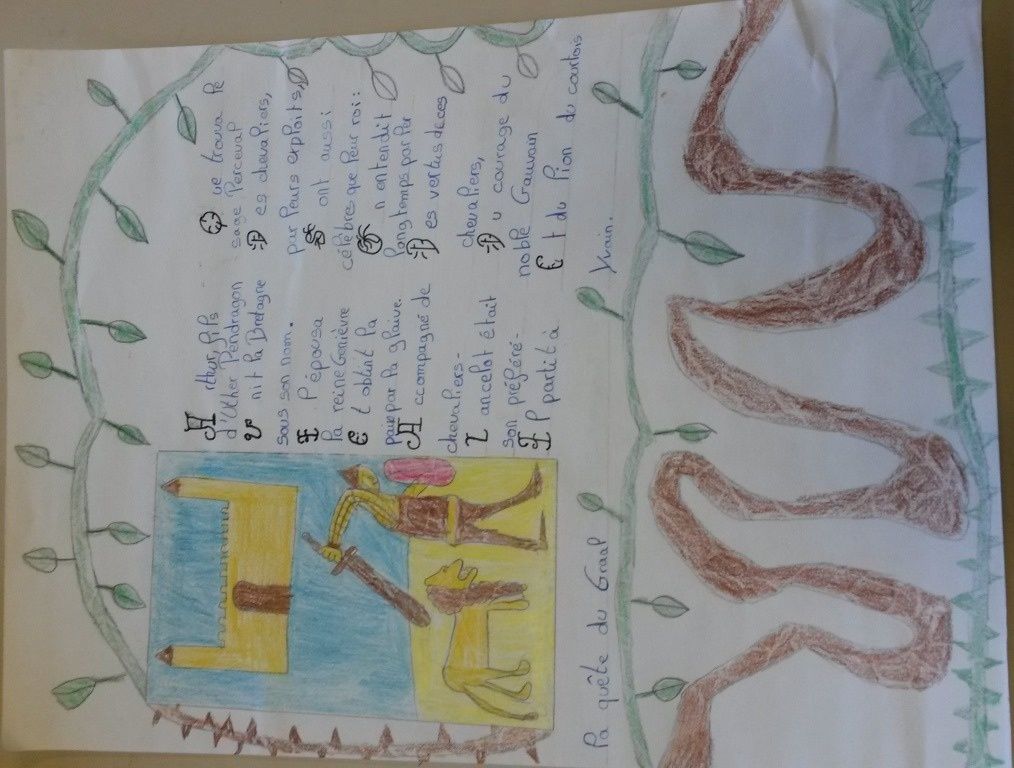 Arthur, fils
d'Uther Pendragon
Unit la Bretagne
sous son nom.
Il épousa
la reine Genièvre
Et obtint la
paix par la glaive
Accompagné de
chevaliers-
Lancelot était
son préféré-
Il partit à
la quête du Graal
Que trouva le
sage Perceval
Des chevaliers,
pur leurs exploits,
Sont aussi
célèbres que leur roi:
On entendit
longtemps parler
Des vertus de ces
chevaliers,
Du courage du
noble Gauwain
Et du lion du courtois
Yvain.